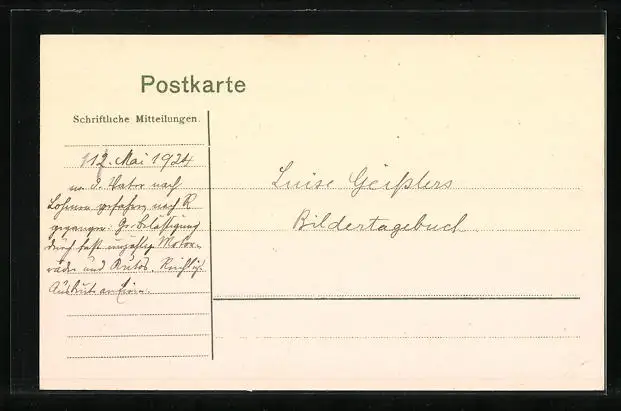 Postkarte
Schriftliche Mitteilungen.
12. Mai 1924
m. d. Vater nach
Lohmen gefahren nach R
gegangen. Gr. Belästigung
durch fast unzählige Motor-
räder und Autos. Reichl.
Luise Geißlers
Bildertagebuch